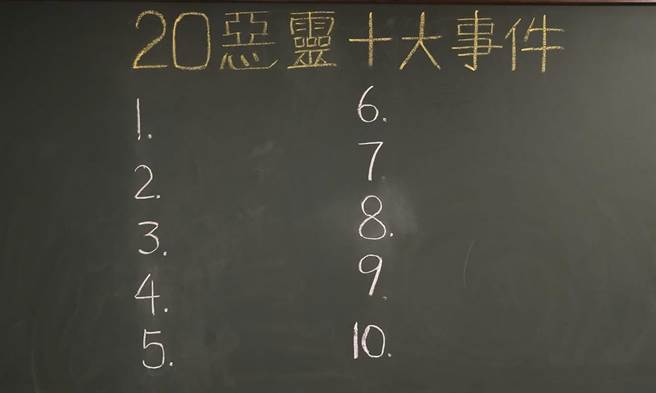 20惡靈十大事件
1.
2.
3.
4.
5.
6.
7
8.
9.
10.